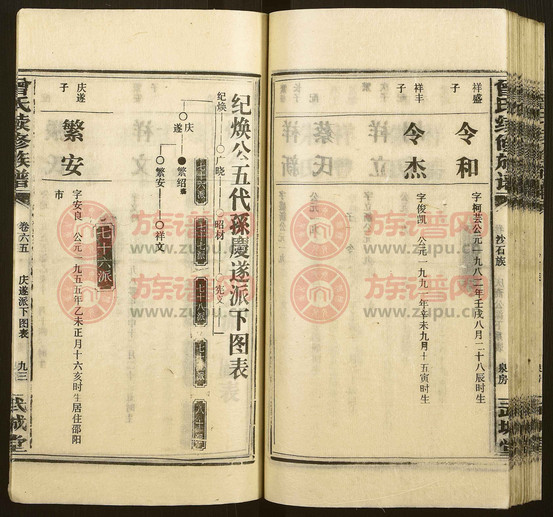 曾氏续修族谱
沙石族
泉房
武城堂
祥盛
子
令和
字柯芸公元一九八二年壬戌八月二十八辰时生
祥丰
子
令杰
字俊凯 公元一九九一年辛未九月十五寅时生
纪焕公五代孫慶遂派下图表
纪焕
广晓
昭材
宪文
庆遂
繁绍
繁安
祥文
七十六派
庆遂
子
繁安
字安良 公元一九五五年乙未正月十六亥时生居住邵阳
市
曾氏续修族谱
卷六五
庆遂派下图表
九三
武城堂
族谱网
www.zupu.cn